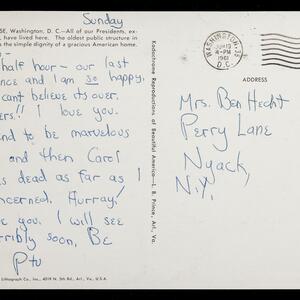 Sunday
SE, Washington, D. C.—All of our Presidents, ex-
, have lived here. The oldest public structure in
s the simple dignity of a gracious American home.
half hour - our last
nce and I am so happy.
cant believe its over.
ers!! I love you.
end to be marvelous
and then Carol
is dead as far as I
ncerned. Hurray!
e you. I will see
rribly soon, Be
Lithograph Co., Inc., 4019 N. 5th Rd., Arl., Va., U.S.A.
Kodachrome Reproductions of Beautiful America—L. B. Prince, Arl., Va.
WASHINGTON
JUN 19
4-PM
1961
D.C.
ADDRESS
Mrs. Ben Hecht
Perry Lane
Nyack,
N.Y.